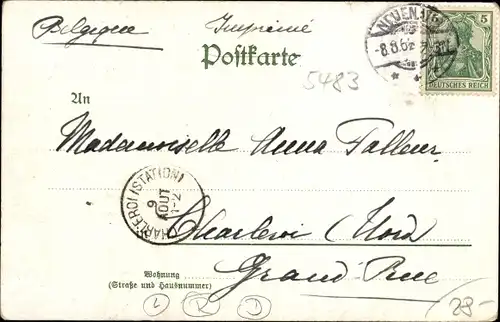 Belgique Imprimé
Postkarte
5483
5
DEUTSCHES REICH
An
Mademoiselle Anna Falleur
CHARLEROI (STATION)
9
AOUT
1-2
Charleroi (Nord
Grand Rue
Wohnung
(Straße und Hausnummer)
L R D
28-